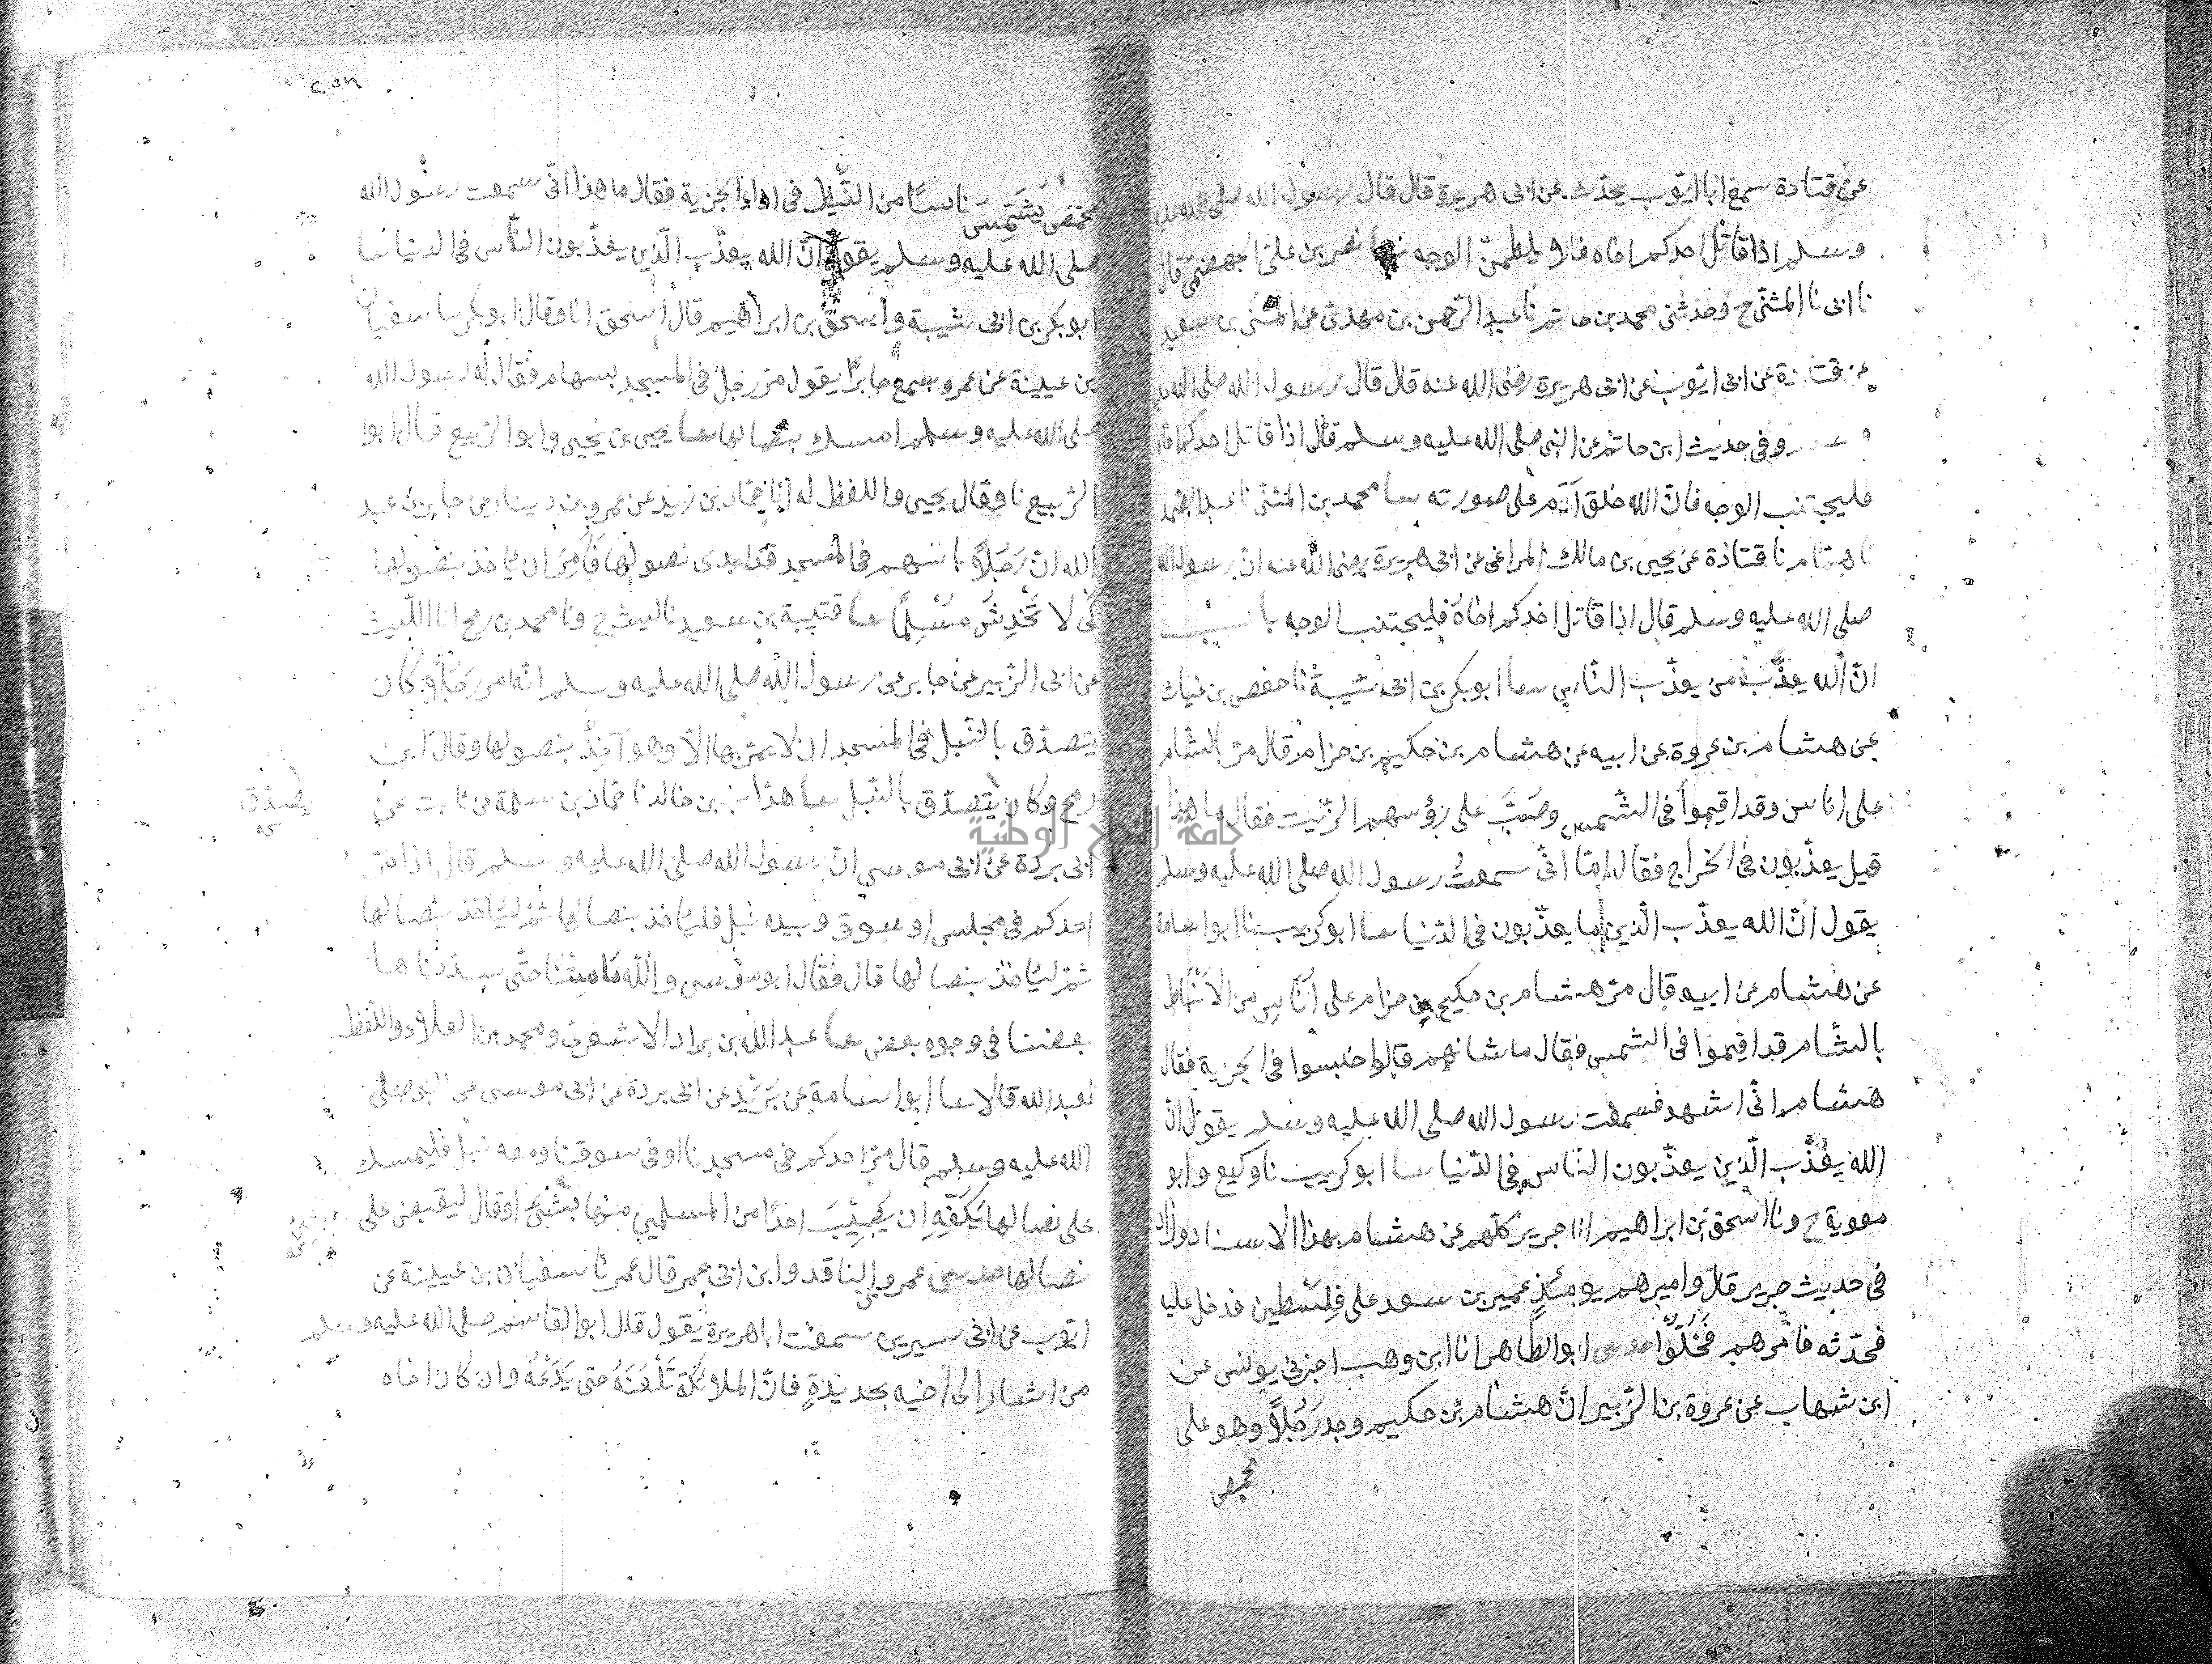 عن قتادة سمع ابا ايوب يحدث عن ابى هريرة قال قال رسول الله صلى الله عليه
وسلم اذا قاتل احدكم اخاه فلا يلطمن الوجه نصر بن على الجهضمى قال
نا ابى نا المثنى ح وحدثنى محمد بن حاتم نا عبد الرحمن بن مهدى عن المثنى بن سعيد
عن قتادة عن ابى ايوب عن ابى هريرة رضى الله عنه قال قال رسول الله صلى الله عليه
وسلم وفى حديث ابن حاتم عن النبى صلى الله عليه وسلم قال اذا قاتل احدكم اخاه
فليجتنب الوجه فان الله خلق آدم على صورته سا محمد بن المثنى نا عبد الصمد
نا همام نا قتادة عن يحيى بن مالك المراغى عن ابى هريرة رضى الله عنه ان رسول الله
صلى الله عليه وسلم قال اذا قاتل احدكم اخاه فليجتنب الوجه باب
ان الله يعذب من يعذب الناس سا ابو بكر بن ابى شيبة نا حفص بن غياث
عن هشام بن عروة عن ابيه عن هشام بن حكيم بن حزام قال مر بالشام
على اناس وقد اقيموا فى الشمس وصَبَّ على رؤسهم الزيت فقال ما هذا
قيل يعذبون فى الخراج فقال اما انى سمعت رسول الله صلى الله عليه وسلم
يقول ان الله يعذب الذين ما يعذبون فى الدنيا سا ابو كريب نا ابو اسامة
عن هشام عن ابيه قال مر هشام بن حكيم بن حزام على اُنَاسٍ من الاَنْبَاطِ
بالشام قد اقيموا فى الشمس فقال ما شانهم قالوا حبسوا فى الجزية فقال
هشام انى اشهد فسمعت رسول الله صلى الله عليه وسلم يقول ان
الله يعذب الذين يعذبون الناس فى الدنيا سا ابو كريب نا وكيع وابو
معوية ح ونا اسحق بن ابراهيم انا جرير كلهم عن هشام بهذا الاسناد وزاد
فى حديث جرير قال واميرهم يومئذٍ عمير بن سعد على فِلَسْطين فدخل عليه
فحدثه فامرهم فَخُلُّوا حدسى ابو الطاهر انا ابن وهب اخبرنى يونس عن
ابن شهاب عن عروة بن الزبير ان هشام بن حكيم وجد رَجُلاً وهو على
حمص
٢٥٨
حمص يُشَمِّسُ ناسًا من النَّبَط فى اداء الجزية فقال ما هذا انى سمعت رسول الله
صلى الله عليه وسلم يقول ان الله يعذب الذين يعذبون الناس فى الدنيا سا
ابو بكر بن ابى شيبة واسحق بن ابراهيم قال اسحق انا وقال ابو بكر سا سفيان
بن عيينة عن عمرو سمع جابرًا يقول مر رجل فى المسجد بسهام فقال له رسول الله
صلى الله عليه وسلم امسك بنصالها سا يحيى بن يحيى وابو الربيع قال ابوا
الربيع نا وقال يحيى واللفظ له انا حماد بن زيد عن عمرو بن دينار عن جابر بن عبد
الله ان رَجُلاً باسهم فى المسجد قد ابدى نصولها فَاُمِرَ ان ياخذ بنصولها
كَى لا تَخْدِشَ مُسْلِمًا سا قتيبة بن سعيد نا ليث ح ونا محمد بن رمح انا الليث
عن ابى الزبير عن جابر عن رسول الله صلى الله عليه وسلم انه امر رَجُلاً كان
يتصدق بالنبل فى المسجد ان لا يمر بها الا وهو آخِذٌ بنصولها وقال ابن
رمح وكان يتصدق بالنبل سا هداب بن خالد نا حماد بن سلمة عن ثابت عن
يصدق
ابى بردة عن ابى موسى ان رسول الله صلى الله عليه وسلم قال اذا مر
احدكم فى مجلس او سوق وبيده نبل فلياخذ بنصالها ثم لياخذ بنصالها
ثم لياخذ بنصالها قال فقال ابو موسى والله ما متنا حتى سددناها
بعضنا فى وجوه بعض سا عبد الله بن براد الاشعرى ومحمد بن العلاء واللفظ
لعبد الله قالا سا ابو اسامة عن بُرَيْد عن ابى بردة عن ابى موسى عن النبى صلى
الله عليه وسلم قال مر احدكم فى مسجدنا او فى سوقنا ومعه نبل فليمسك
على نصالها بِكَفِّهِ ان يُصِيْبَ احدًا من المسلمين منها بشئ او قال ليقبض على
نصالها حدسى عمرو الناقد وابن ابى عمر قال عمر نا سفيان بن عيينة عن
ايوب عن ابن سيرين سمعت ابا هريرة يقول قال ابو القاسم صلى الله عليه وسلم
من اشار الى اخيه بحديدةٍ فان الملائكة تَلْعَنُهُ حتى يَدَعَهُ وان كان اخاه
جامعة النجاح الوطنية